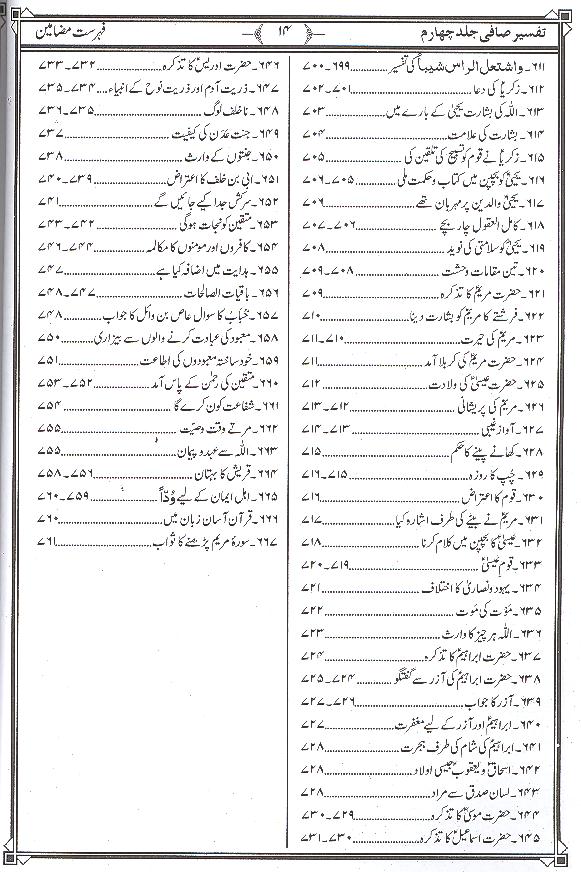 تفسیر صافی جلد چہارم
۱۴
فہرست مضامین
۶۱۱۔واشتعل الراس شیبا کی تفسیر ........ ۶۹۹۔۷۰۰
۶۱۲۔زکریاؑ کی دعا ........ ۷۰۱۔۷۰۲
۶۱۳۔اللہ کی بشارت یحییٰؑ کے بارے میں ........ ۷۰۳
۶۱۴۔بشارت کی علامت ........ ۷۰۴
۶۱۵۔زکریاؑ نے قوم کو تسبیح کی تلقین کی ........ ۷۰۵
۶۱۶۔یحییٰؑ کو بچپن میں کتاب و حکمت ملی ........ ۷۰۵۔۷۰۶
۶۱۷۔یحییٰؑ والدین پر مہربان تھے ........ ۷۰۶
۶۱۸۔کامل العقول چار بچے ........ ۷۰۶۔۷۰۷
۶۱۹۔یحییٰؑ کو سلامتی کی نوید ........ ۷۰۸
۶۲۰۔تین مقامات وحشت ........ ۷۰۸۔۷۰۹
۶۲۱۔حضرت مریمؑ کا تذکرہ ........ ۷۰۹
۶۲۲۔فرشتے کا مریمؑ کو بشارت دینا ........ ۷۱۰
۶۲۳۔مریمؑ کی حیرت ........ ۷۱۰۔۷۱۱
۶۲۴۔حضرت مریمؑ کی کربلا آمد ........ ۷۱۱
۶۲۵۔حضرت عیسیٰؑ کی ولادت ........ ۷۱۲
۶۲۶۔مریمؑ کی پریشانی ........ ۷۱۲۔۷۱۳
۶۲۷۔آواز غیبی ........ ۷۱۳۔۷۱۴
۶۲۸۔کھانے پینے کا حکم ........ ۷۱۵
۶۲۹۔چُپ کا روزہ ........ ۷۱۵۔۷۱۶
۶۳۰۔قوم کا اعتراض ........ ۷۱۶
۶۳۱۔مریمؑ نے بیٹے کی طرف اشارہ کیا ........ ۷۱۷
۶۳۲۔عیسیٰؑ کا بچپن میں کلام کرنا ........ ۷۱۸
۶۳۳۔قوم عیسیٰؑ ........ ۷۱۹۔۷۲۰
۶۳۴۔یہود و نصاریٰ کا اختلاف ........ ۷۲۱
۶۳۵۔مَوت کی مَوت ........ ۷۲۲
۶۳۶۔اللہ ہر چیز کا وارث ........ ۷۲۳
۶۳۷۔حضرت ابراہیمؑ کا تذکرہ ........ ۷۲۴
۶۳۸۔حضرت ابراہیمؑ کی آزر سے گفتگو ........ ۷۲۴۔۷۲۵
۶۳۹۔آزر کا جواب ........ ۷۲۶۔۷۲۷
۶۴۰۔ابراہیمؑ اور آزر کے لیے مغفرت ........ ۷۲۷
۶۴۱۔ابراہیمؑ کی شام کی طرف ہجرت ........ ۷۲۸
۶۴۲۔اسحاقؑ و یعقوبؑ جیسی اولاد ........ ۷۲۸
۶۴۳۔لسان صدق سے مراد ........ ۷۲۸
۶۴۴۔حضرت موسیٰؑ کا تذکرہ ........ ۷۲۹۔۷۳۰
۶۴۵۔حضرت اسماعیلؑ کا تذکرہ ........ ۷۳۰۔۷۳۱
۶۴۶۔حضرت ادریسؑ کا تذکرہ ........ ۷۳۲۔۷۳۳
۶۴۷۔ذریت آدم اور ذریت نوح کے انبیاء ........ ۷۳۴۔۷۳۵
۶۴۸۔ناخلف لوگ ........ ۷۳۵۔۷۳۶
۶۴۹۔جنت عَدَن کی کیفیت ........ ۷۳۷
۶۵۰۔جنتوں کے وارث ........ ۷۳۸
۶۵۱۔اُبی بن خلف کا اعتراض ........ ۷۳۹۔۷۴۰
۶۵۲۔سرکش جدا کیے جائیں گے ........ ۷۴۱
۶۵۳۔متقین کو نجات ہوگی ........ ۷۴۲۔۷۴۳
۶۵۴۔کافروں اور مومنوں کا مکالمہ ........ ۷۴۴۔۷۴۶
۶۵۵۔ہدایت میں اضافہ کیا ہے ........ ۷۴۷
۶۵۶۔باقیات الصالحات ........ ۷۴۷۔۷۴۸
۶۵۷۔خبّاب کا سوال عاص بن وائل کا جواب ........ ۷۴۸
۶۵۸۔معبود کی عبادت کرنے والوں سے بیزاری ........ ۷۵۰
۶۵۹۔خود ساختہ معبودوں کی اطاعت ........ ۷۵۱
۶۶۰۔متقین کی رحمٰن کے پاس آمد ........ ۷۵۲۔۷۵۳
۶۶۱۔شفاعت کون کرے گا ........ ۷۵۴
۶۶۲۔مرتے وقت وصیّت ........ ۷۵۵
۶۶۳۔اللہ سے عہد و پیمان ........ ۷۵۵
۶۶۴۔قریش کا بہتان ........ ۷۵۶۔۷۵۸
۶۶۵۔اہل ایمان کے لیے وُدّاً ........ ۷۵۹۔۷۶۰
۶۶۶۔قرآن آسان زبان میں ........ ۷۶۰
۶۶۷۔سورۂ مریم پڑھنے کا ثواب ........ ۷۶۱